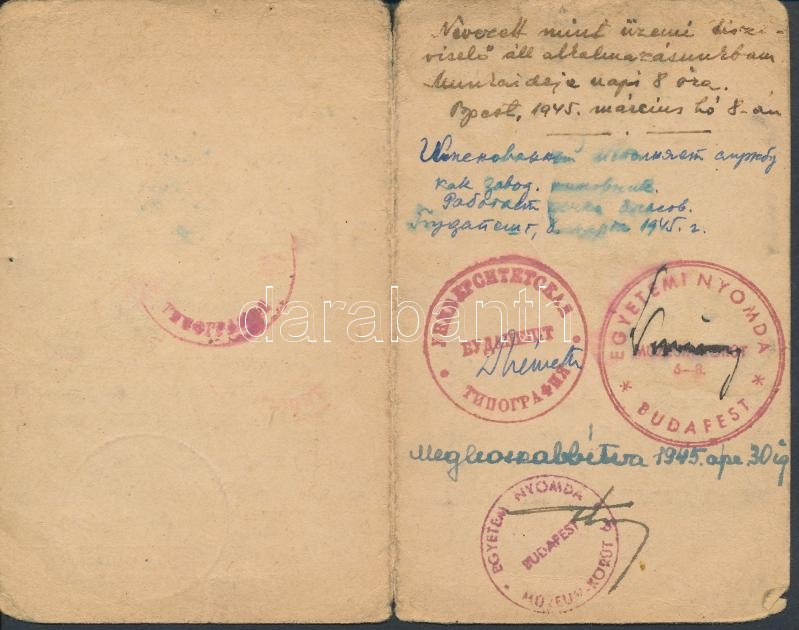 Nevezett mint üzemi tiszt-
viselő áll alkalmazásunkban
Munkaideje napi 8 óra.
Bpest, 1945. március hó 8-án
Именованный исполняет службу
как завод. чиновник.
Работает часов.
Будапешт, 8 марта 1945. г.
ТИПОГРАФИЯ
УНИВЕРСИТЕТСКАЯ
БУДАПЕШТ
ТИПОГРАФИЯ
EGYETEMI NYOMDA
MÚZEUM-KÖRÚT
6–8.
BUDAPEST
Meghosszabbítva 1945. ápr. 30ig
EGYETEMI NYOMDA
BUDAPEST
MÚZEUM-KÖRÚT
darabanth